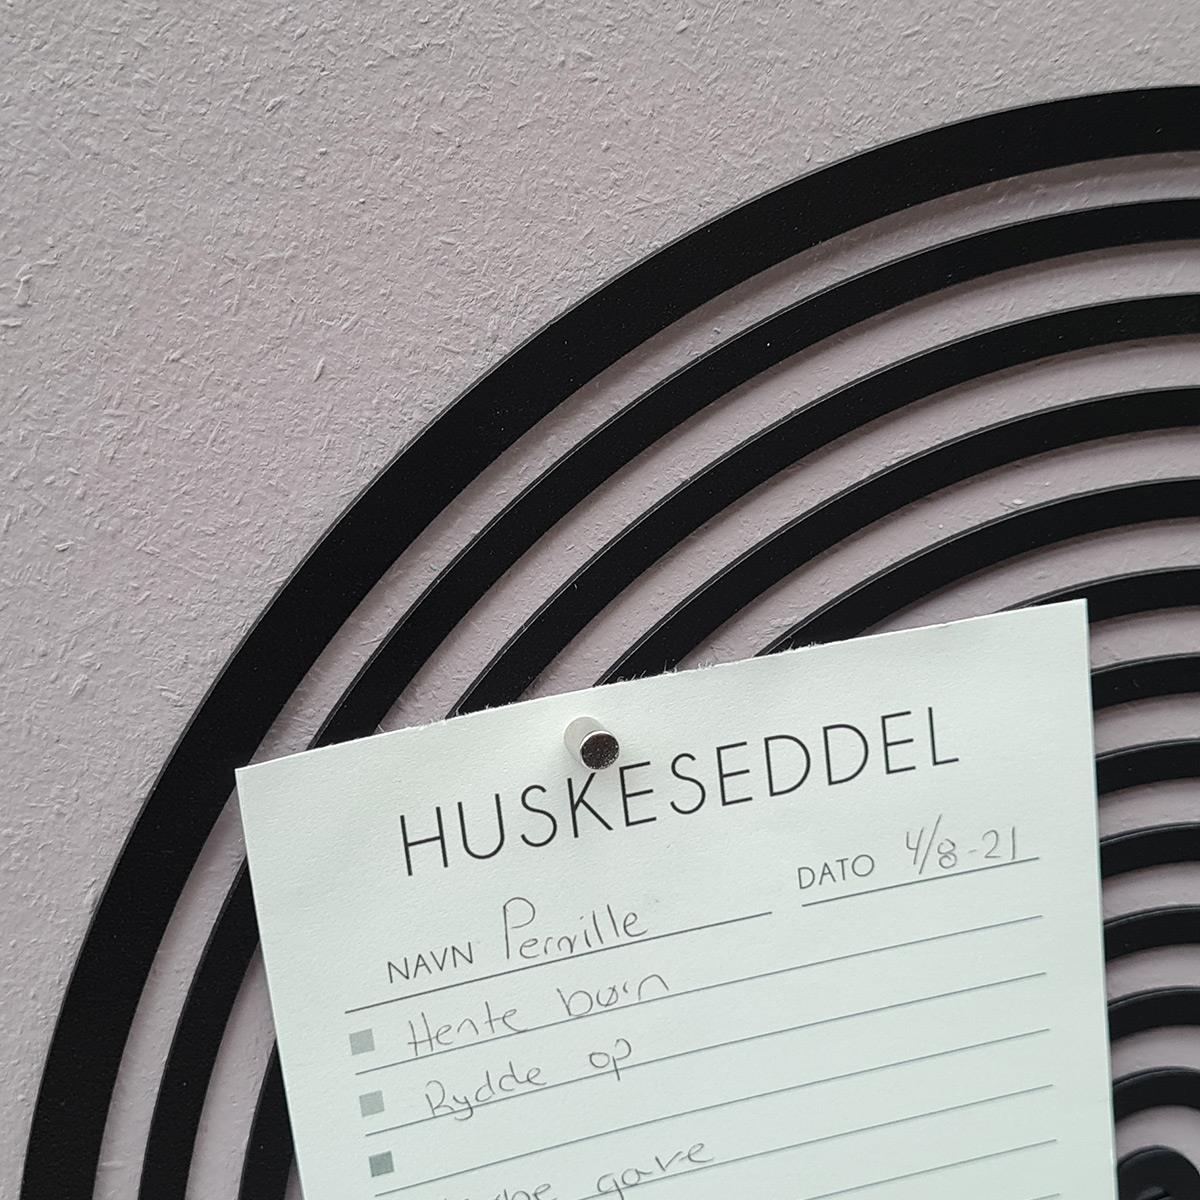 HUSKESEDDEL
DATO 4/8-21
NAVN Pernille
Hente børn
Rydde op
gave